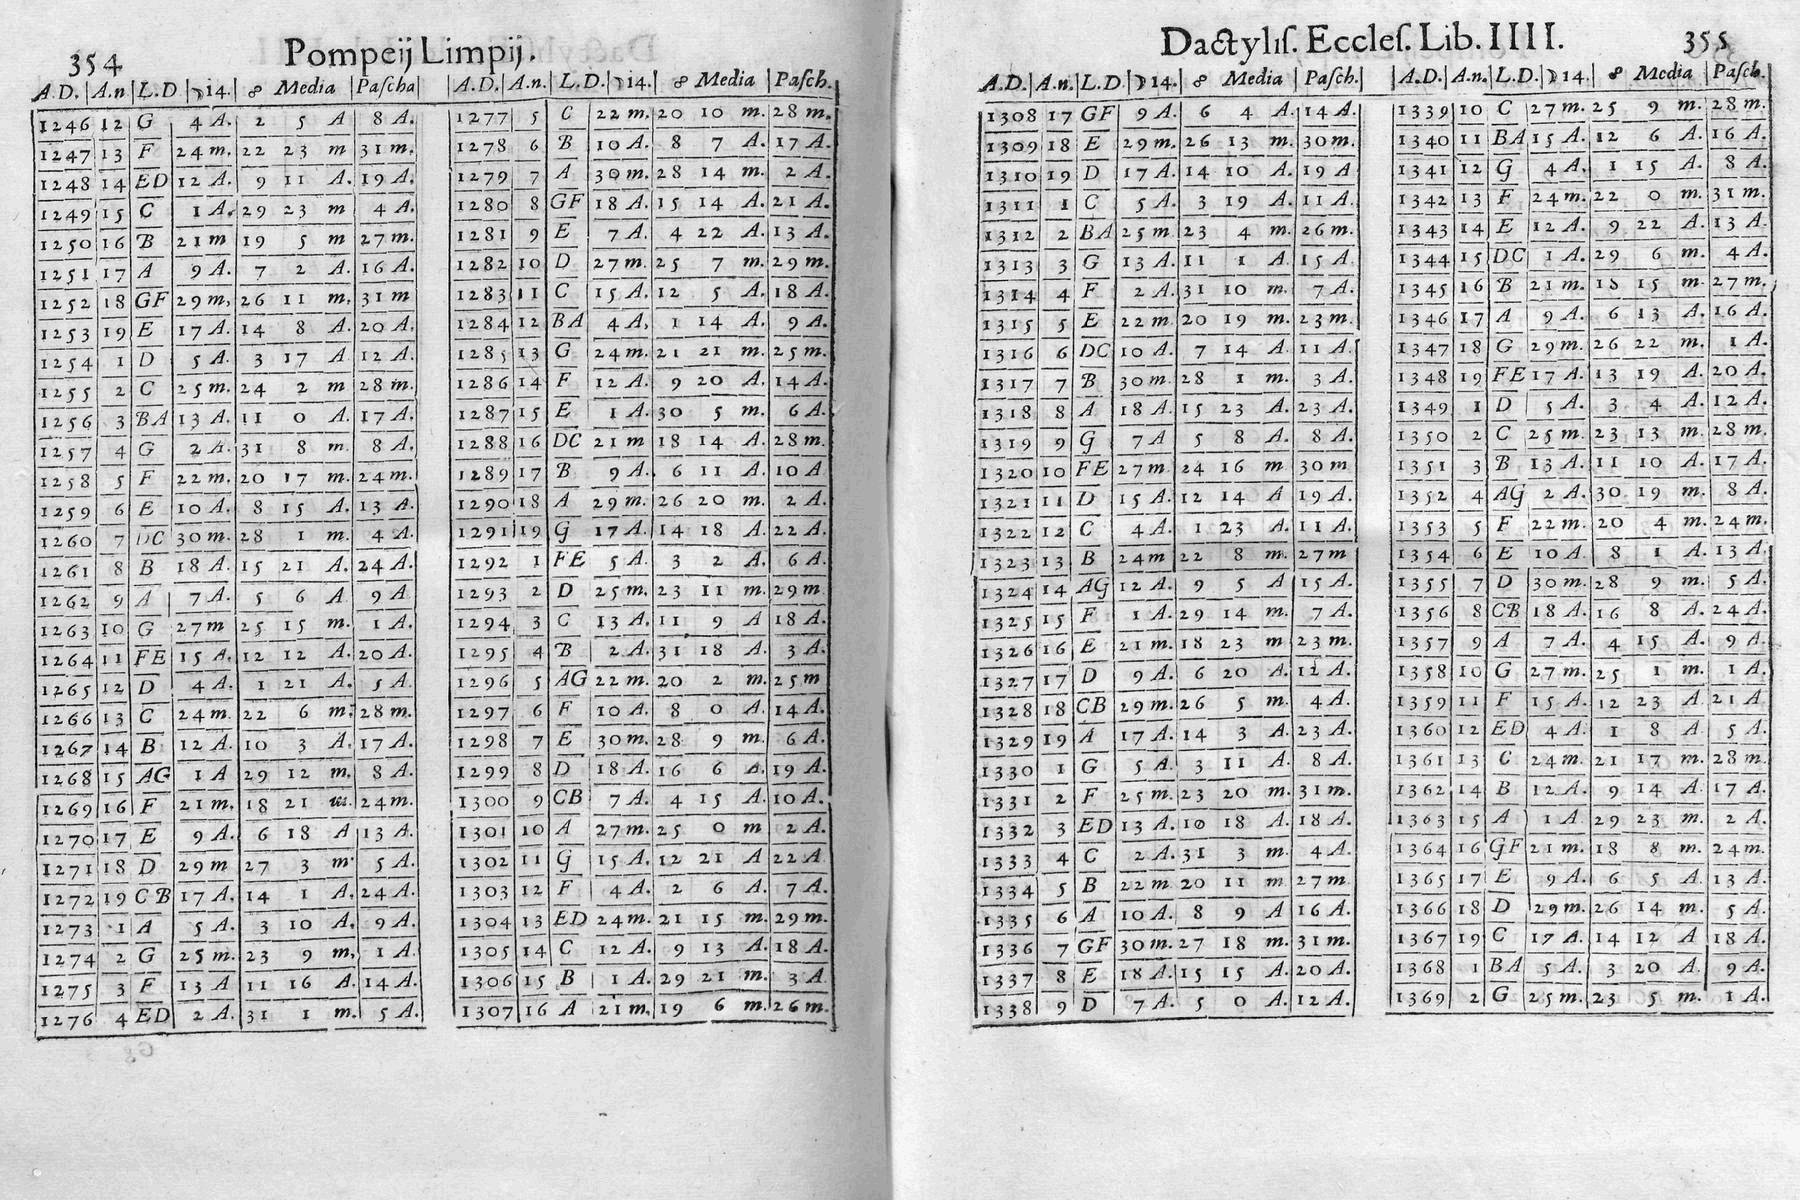 354
Pompeij Limpij.
A.D. A.n L.D ☽14. ☍ Media Paſcha
1246 12 G 4 A. 2 5 A 8 A.
1247 13 F 24 m. 22 23 m 31 m.
1248 14 ED 12 A. 9 11 A. 19 A.
1249 15 C 1 A. 29 23 m 4 A.
1250 16 B 21 m 19 5 m 27 m.
1251 17 A 9 A. 7 2 A. 16 A.
1252 18 GF 29 m, 26 11 m, 31 m
1253 19 E 17 A. 14 8 A. 20 A.
1254 1 D 5 A. 3 17 A 12 A.
1255 2 C 25 m. 24 2 m 28 m.
1256 3 BA 13 A. 11 0 A. 17 A.
1257 4 G 2 A. 31 8 m. 8 A.
1258 5 F 22 m. 20 17 m. 24 m.
1259 6 E 10 A. 8 15 A. 13 A.
1260 7 DC 30 m. 28 1 m. 4 A.
1261 8 B 18 A. 15 21 A. 24 A.
1262 9 A 7 A. 5 6 A 9 A
1263 10 G 27 m 25 15 m. 1 A.
1264 11 FE 15 A. 12 12 A. 20 A.
1265 12 D 4 A. 1 21 A. 5 A.
1266 13 C 24 m. 22 6 m. 28 m.
1267 14 B 12 A. 10 3 A. 17 A.
1268 15 AG 1 A 29 12 m, 8 A.
1269 16 F 21 m, 18 21 m. 24 m.
1270 17 E 9 A. 6 18 A 13 A.
1271 18 D 29 m 27 3 m 5 A.
1272 19 CB 17 A. 14 1 A. 24 A.
1273 1 A 5 A. 3 10 A. 9 A.
1274 2 G 25 m. 23 9 m, 1 A.
1275 3 F 13 A 11 16 A. 14 A.
1276 4 ED 2 A. 31 1 m. 5 A.
A.D. A.n. L.D. ☽14. ☍ Media Paſch.
1277 5 C 22 m. 20 10 m. 28 m.
1278 6 B 10 A. 8 7 A. 17 A.
1279 7 A 30 m. 28 14 m. 2 A.
1280 8 GF 18 A. 15 14 A. 21 A.
1281 9 E 7 A. 4 22 A. 13 A.
1282 10 D 27 m. 25 7 m. 29 m.
1283 11 C 15 A. 12 5 A. 18 A.
1284 12 BA 4 A, 1 14 A, 9 A.
1285 13 G 24 m. 21 21 m. 25 m.
1286 14 F 12 A. 9 20 A. 14 A.
1287 15 E 1 A. 30 5 m. 6 A.
1288 16 DC 21 m 18 14 A. 28 m.
1289 17 B 9 A. 6 11 A. 10 A
1290 18 A 29 m. 26 20 m. 2 A.
1291 19 G 17 A. 14 18 A. 22 A.
1292 1 FE 5 A. 3 2 A. 6 A.
1293 2 D 25 m. 23 11 m. 29 m.
1294 3 C 13 A. 11 9 A 18 A.
1295 4 B 2 A. 31 18 A. 3 A.
1296 5 AG 22 m. 20 2 m. 25 m
1297 6 F 10 A. 8 0 A. 14 A.
1298 7 E 30 m. 28 9 m. 6 A.
1299 8 D 18 A. 16 6 A. 19 A.
1300 9 CB 7 A. 4 15 A. 10 A.
1301 10 A 27 m. 25 0 m 2 A.
1302 11 G 15 A. 12 21 A 22 A.
1303 12 F 4 A. 2 6 A. 7 A.
1304 13 ED 24 m. 21 15 m. 29 m.
1305 14 C 12 A. 9 13 A. 18 A.
1306 15 B 1 A. 29 21 m. 3 A.
1307 16 A 21 m. 19 6 m. 26 m.
Dactyliſ. Eccleſ. Lib. IIII.
355
A.D. A.n. L.D. ☽14. ☍ Media Paſch.
1308 17 GF 9 A. 6 4 A. 14 A.
1309 18 E 29 m. 26 13 m. 30 m.
1310 19 D 17 A. 14 10 A. 19 A
1311 1 C 5 A. 3 19 A. 11 A.
1312 2 BA 25 m. 23 4 m. 26 m.
1313 3 G 13 A. 11 1 A. 15 A.
1314 4 F 2 A. 31 10 m. 7 A.
1315 5 E 22 m. 20 19 m. 23 m.
1316 6 DC 10 A. 7 14 A. 11 A.
1317 7 B 30 m. 28 1 m. 3 A.
1318 8 A 18 A. 15 23 A. 23 A.
1319 9 G 7 A 5 8 A. 8 A.
1320 10 FE 27 m. 24 16 m 30 m
1321 11 D 15 A. 12 14 A 19 A.
1322 12 C 4 A. 1 23 A. 11 A.
1323 13 B 24 m 22 8 m. 27 m
1324 14 AG 12 A. 9 5 A 15 A.
1325 15 F 1 A. 29 14 m. 7 A.
1326 16 E 21 m. 18 23 m 23 m.
1327 17 D 9 A. 6 20 A. 12 A.
1328 18 CB 29 m. 26 5 m. 4 A.
1329 19 A 17 A. 14 3 A. 23 A.
1330 1 G 5 A. 3 11 A. 8 A.
1331 2 F 25 m. 23 20 m. 31 m.
1332 3 ED 13 A. 10 18 A. 18 A.
1333 4 C 2 A. 31 3 m. 4 A.
1334 5 B 22 m 20 11 m 27 m.
1335 6 A 10 A. 8 9 A 16 A.
1336 7 GF 30 m. 27 18 m. 31 m.
1337 8 E 18 A. 15 15 A. 20 A.
1338 9 D 7 A. 5 0 A. 12 A.
A.D. A.n. L.D. ☽14. ☍ Media Paſch.
1339 10 C 27 m. 25 9 m. 28 m.
1340 11 BA 15 A. 12 6 A. 16 A.
1341 12 G 4 A. 1 15 A. 8 A.
1342 13 F 24 m. 22 0 m. 31 m.
1343 14 E 12 A. 9 22 A. 13 A.
1344 15 DC 1 A. 29 6 m. 4 A.
1345 16 B 21 m. 18 15 m. 27 m.
1346 17 A 9 A. 6 13 A. 16 A.
1347 18 G 29 m. 26 22 m. 1 A.
1348 19 FE 17 A. 13 19 A. 20 A.
1349 1 D 5 A. 3 4 A. 12 A.
1350 2 C 25 m. 23 13 m. 28 m.
1351 3 B 13 A. 11 10 A. 17 A.
1352 4 AG 2 A. 30 19 m. 8 A.
1353 5 F 22 m. 20 4 m. 24 m.
1354 6 E 10 A. 8 1 A. 13 A.
1355 7 D 30 m. 28 9 m. 5 A.
1356 8 CB 18 A. 16 8 A. 24 A.
1357 9 A 7 A. 4 15 A. 9 A.
1358 10 G 27 m. 25 1 m. 1 A.
1359 11 F 15 A. 12 23 A. 21 A
1360 12 ED 4 A. 1 8 A. 5 A.
1361 13 C 24 m. 21 17 m. 28 m.
1362 14 B 12 A. 9 14 A. 17 A.
1363 15 A 1 A. 29 23 m. 2 A.
1364 16 GF 21 m. 18 8 m. 24 m.
1365 17 E 9 A. 6 5 A. 13 A.
1366 18 D 29 m. 26 14 m. 5 A.
1367 19 C 17 A. 14 12 A 18 A.
1368 1 BA 5 A. 3 20 A. 9 A.
1369 2 G 25 m. 23 5 m. 1 A.